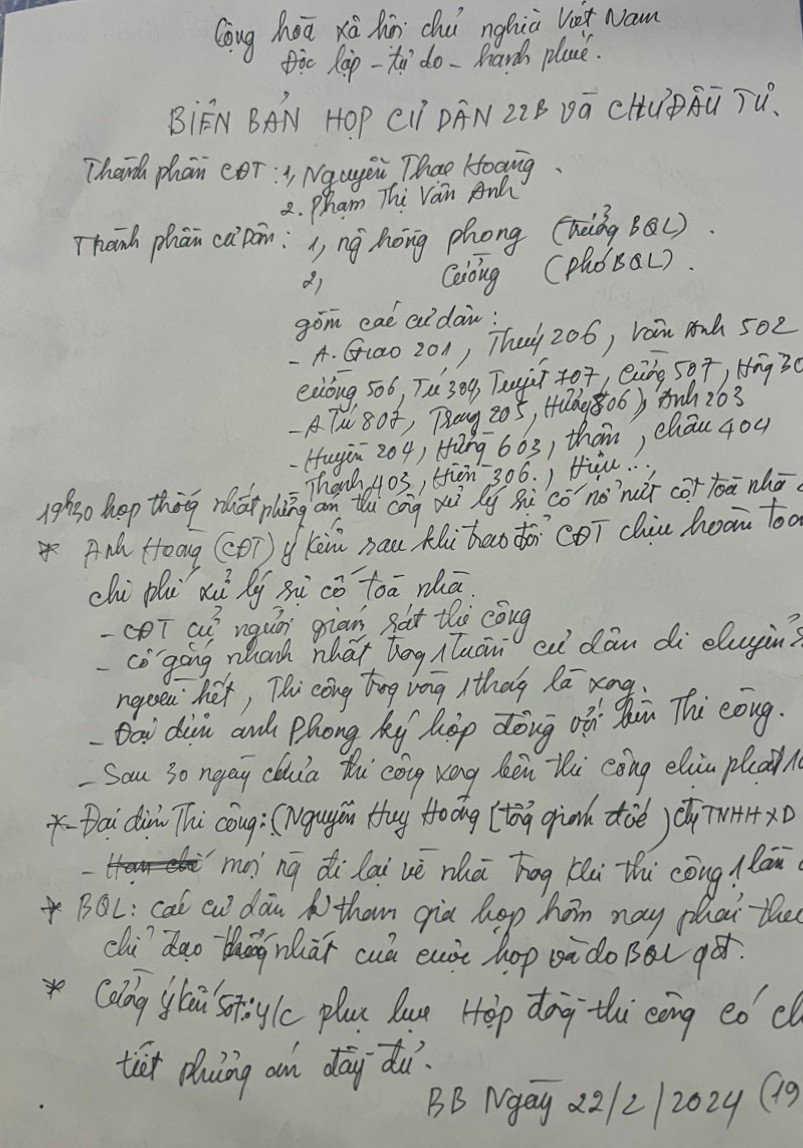 Cộng hoà xã hội chủ nghĩa Việt Nam
Độc lập - tự do - hạnh phúc.
BIÊN BẢN HỌP CƯ DÂN 22B và CHỦ ĐẦU TƯ.
Thành phần CĐT: 1, Nguyễn Thao Hoàng.
2. Phạm Thị Vân Anh
Thành phần cư Dân: 1, ng hồng phong (trưởng BQL).
2, Cường (phó BQL).
gồm các cư dân:
- A. Giao 201, Thuý 206, Vân Anh 502
Cường 506, Tú 304, Tuyết 707, Cường 507, Hồng 30
- A Tú 807, Trang 205, Hường 806), Ánh 203
- Huyền 204, Hưng 603, thơm, châu 404
Thanh 403, Hiền 306., Hiệu...
19h30 họp thống nhất phương án thi công xử lý sự cố nổ nứt cột toà nhà
* Anh Hoàng (CĐT) ý kiến sau khi trao đổi CĐT chịu hoàn toà
chi phí xử lý sự cố toà nhà.
- CĐT cử người giám sát thi công
- Cố gắng nhanh nhất trong 1 tuần cư dân di chuyển
người hết, Thi công trong vòng 1 tháng là xong.
- Đại diện anh Phong ký hợp đồng với bên Thi công.
- Sau 30 ngày chưa thi công xong bên thi công chịu phạt 10
*- Đại diện Thi công: (Nguyễn Huy Hoàng [tổng giám đốc) cty TNHH XD
- mọi ng đi lại về nhà trong khi thi công 1 lần
* BQL: các cư dân k tham gia họp hôm nay phải theo
chỉ đạo thống nhất của cuộc họp và do BQL qđ.
* Cường ý kiến 507: y/c phụ lục Hợp đồng thi công có ch
tiết phương án đầy đủ.
BB Ngày 22/2/2024 (19